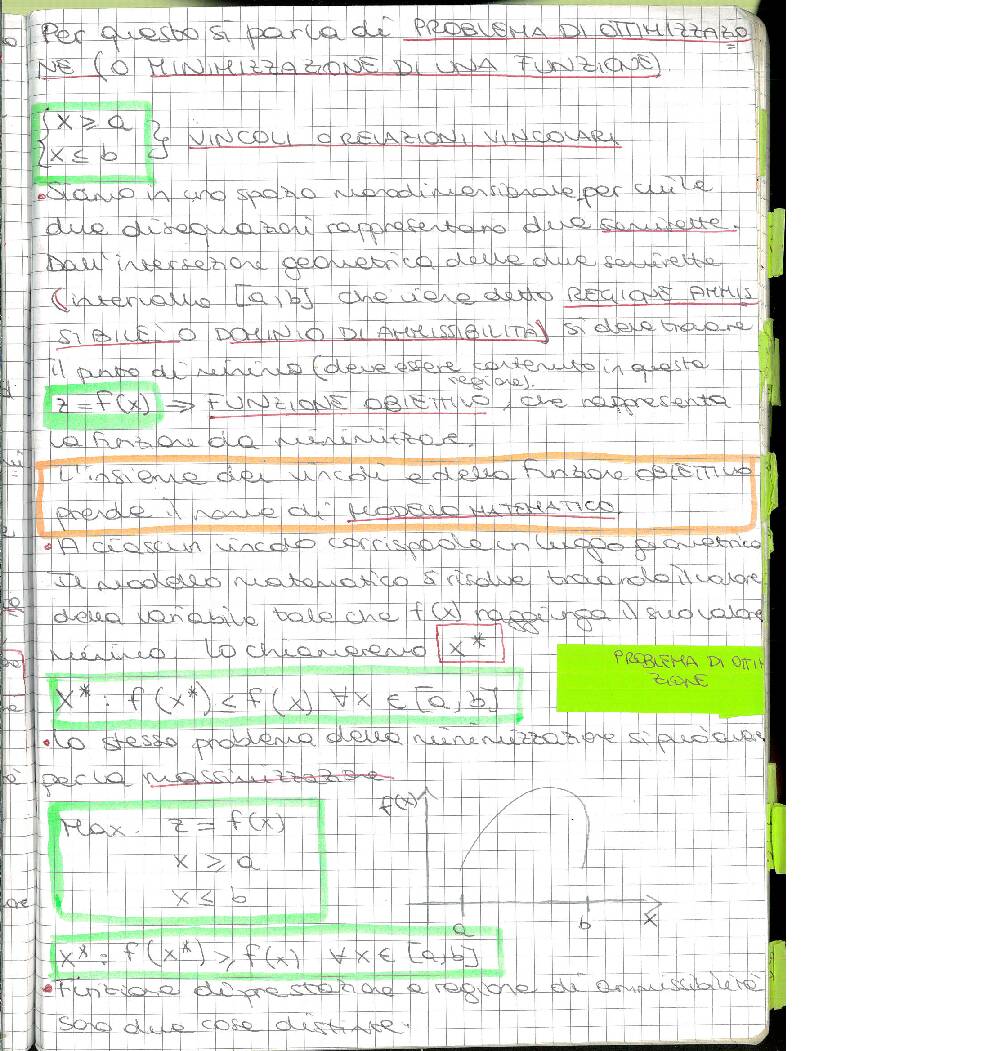 Per questo si parla di PROBLEMA DI OTTIMIZZAZIO
NE (O MINIMIZZAZIONE DI UNA FUNZIONE)
{ x ≥ a
{ x ≤ b } VINCOLI O RELAZIONI VINCOLARI
• Siamo in uno spazio monodimensionale per cui le
due disequazioni rappresentano due semirette.
Dall'intersezione geometrica delle due semirette
(intervallo [a,b] che viene detto REGIONE AMMIS
SIBILE O DOMINIO DI AMMISSIBILITÀ) si deve trovare
il punto di minimo (deve essere contenuto in questa
regione).
z = f(x) => FUNZIONE OBIETTIVO, che rappresenta
la funzione da minimizzare.
L'insieme dei vincoli e della funzione OBIETTIVO
prende il nome di MODELLO MATEMATICO.
• A ciascun vincolo corrisponde un luogo geometrico
Il modello matematico si risolve trovando il valore
della variabile tale che f(x) raggiunga il suo valore
minimo lo chiameremo x*
PROBLEMA DI OTTI
ZIONE
x* : f(x*) ≤ f(x) ∀x ∈ [a,b]
• Lo stesso problema della minimizzazione si può
per la massimizzazione
f(x)
Max z = f(x)
x ≥ a
x ≤ b
a b x
x* : f(x*) ≥ f(x) ∀x ∈ [a,b]
• Funzione di prestazione e regione di ammissibilità
sono due cose distinte.